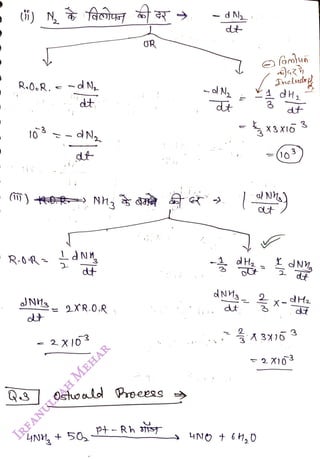 (ii) N₂ के विलोपन की दर → - dN₂/dt
OR
R.O.R. = - dN₂/dt
10⁻³ = - dN₂/dt
⊖ विलोपन
Included
- dN₂/dt = - 1/3 dH₂/dt
= 1/3 × 3×10⁻³
= 10³
(iii) R.O.R. → NH₃ के बनने की दर → (dNH₃/dt)
R.O.R = 1/2 dNH₃/dt
dNH₃/dt = 2×R.O.R
= 2×10⁻³
- 1/3 dH₂/dt = 1/2 dNH₃/dt
dNH₃/dt = 2/3 × - dH₂/dt
= 2/3 × 3×10⁻³
= 2×10⁻³
Q.3 Ostwald Process →
4NH₃ + 5O₂ Pt-Rh गॉज → 4NO + 6H₂O
IRFANULLAH MEHAR